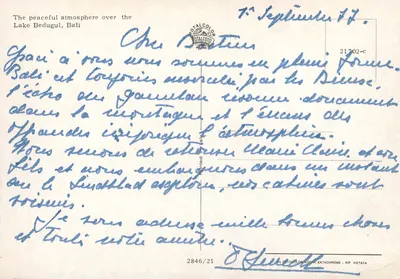 The peaceful atmosphere over the
Lake Bedugul, Bali
1er Septembre 77.
Cher
21702-C
Grâci à vous nous sommes en pleine forme.
Bali est toujours par les Dieux,
l'écho du gamelan résonne doucement
dans la montagne et l'encens des
offrandes l'atmosphère.
Nous venons de retrouver Marie Claire et son
fils et nous embarquons dans un instant
sur le Lindblad explorer, nos cabines sont
voisines.
Je vous adresse mille bonnes choses
et toute notre amitié.
2846/21